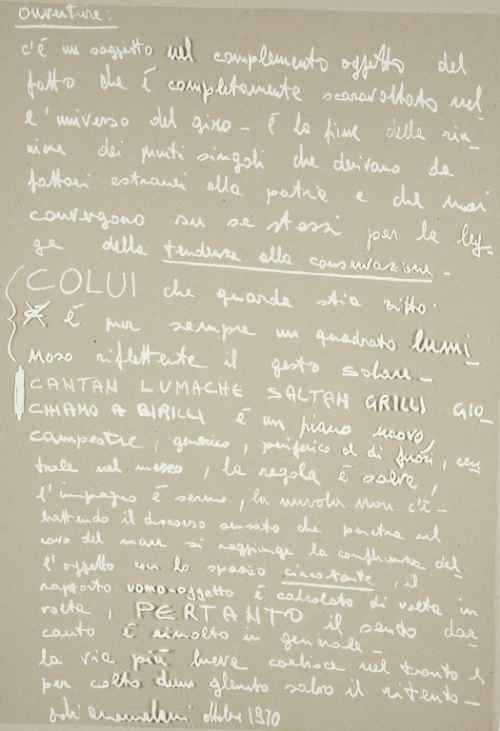 ouverture:
c'è un soggetto nel complemento oggetto del
fatto che è completamente scaraventato nel
l'universo del giro - è la fine della riu
nione dei punti singoli che derivano da
fattori estranei alla patria e che mai
convergono su se stessi per la leg
ge della tendenza alla conservazione -
COLUI che guarda stia zitto.
è pur sempre un quadrato lumi
noso riflettente il gesto solare -
CANTAN LUMACHE SALTAN GRILLI GIO-
CHIAMO A BIRILLI è un piano nuovo,
campestre, generico, periferico e di fuori, cen
trale nel mezzo, la regola è salva,
l'impegno è sereno, la nuvola non c'è -
battendo il discorso sensato che penetra nel
cavo del mare si raggiunge la confluenza del
l'oggetto con lo spazio circostante, il
rapporto uomo-oggetto è calcolato di volta in
volta, PERTANTO il senso dar
è risolto in generale -
la via più breve nel
per salvo il
ottobre 1970